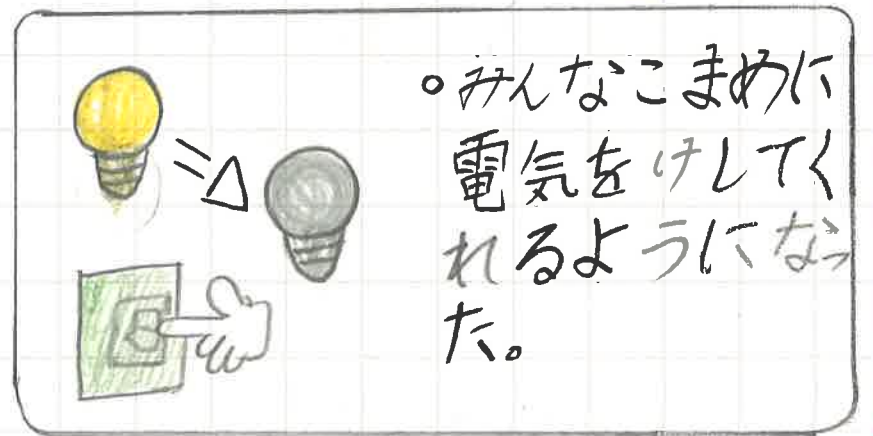 。みんなこまめに
電気をけしてく
れるようになっ
た。